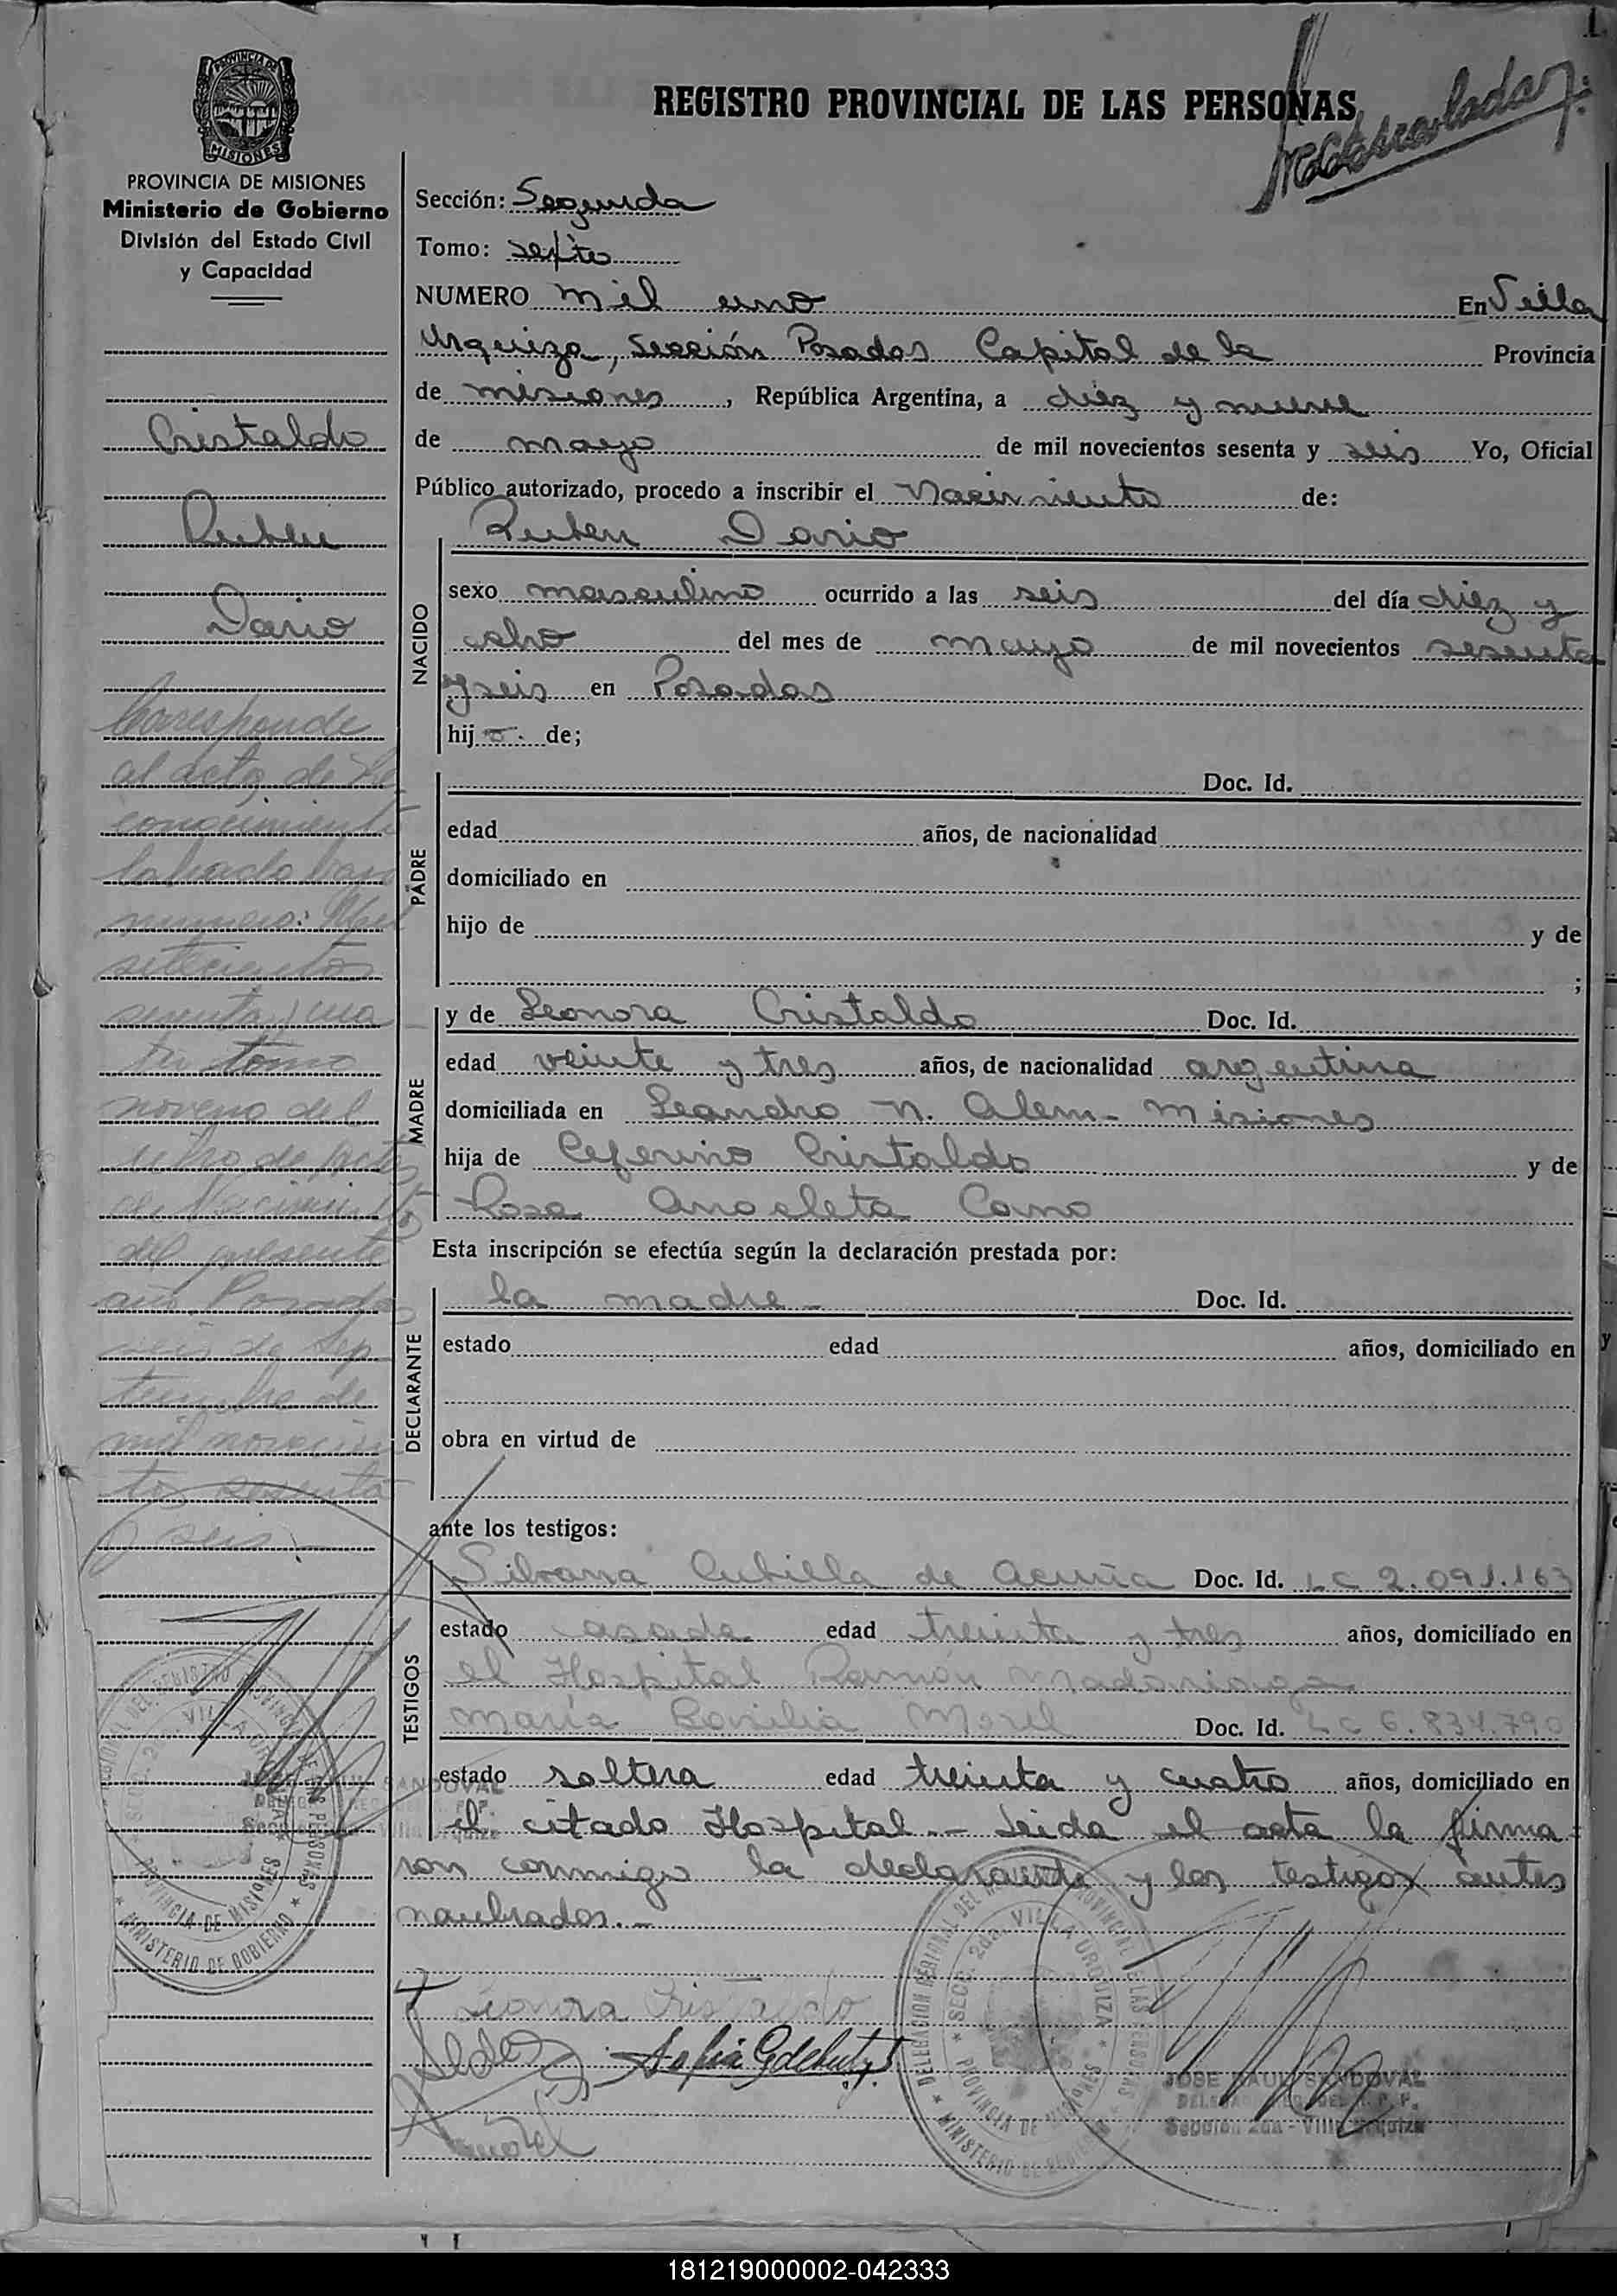 REGISTRO PROVINCIAL DE LAS PERSONAS
PROVINCIA DE MISIONES
PROVINCIA DE MISIONES
Ministerio de Gobierno
División del Estado Civil
y Capacidad
Cristaldo
Ruben
Dario
Corresponde
al acta de Re
conocimiento
labrada bajo
numero: Mil
setecientos
sesenta y cua
tro tomo
noveno del
libro de Actas
de Nacimientos
del presente
año. Posadas
seis de Sep
tiembre de
mil novecien
tos sesenta
y seis.
Sección: Segunda
Tomo: sexto
NUMERO mil uno En Villa
Urquiza, Sección Posadas Capital de la Provincia
de misiones, República Argentina, a diez y nueve
de mayo de mil novecientos sesenta y seis Yo, Oficial
Público autorizado, procedo a inscribir el Nacimiento de:
NACIDO
Ruben Dario
sexo masculino ocurrido a las seis del día diez y
ocho del mes de mayo de mil novecientos sesenta
y seis en Posadas
hijo. de;
PADRE
Doc. Id.
edad años, de nacionalidad
domiciliado en
hijo de y de
;
MADRE
y de Leonora Cristaldo Doc. Id.
edad veinte y tres años, de nacionalidad argentina
domiciliada en Leandro N. Alem - Misiones
hija de Ceferino Cristaldo y de
Rosa Anacleta Cano
Esta inscripción se efectúa según la declaración prestada por:
DECLARANTE
la madre - Doc. Id.
estado edad años, domiciliado en
obra en virtud de
ante los testigos:
TESTIGOS
Silvana Cubilla de Acuña Doc. Id. LC 2.091.163
estado casada edad treinta y tres años, domiciliado en
el Hospital Ramón Madariaga
María Morel Doc. Id. LC 6.834.790
estado soltera edad treinta y cuatro años, domiciliado en
el citado Hospital.- Leida el acta la firma=
ron conmigo la declarante y los testigos antes
nombrados.-
Leonora Cristaldo
JOSE RAUL SANDOVAL
Sección 2da - Villa Urquiza
DELEGACION REGIONAL DEL REGISTRO PROVINCIAL DE LAS PERSONAS
SECC. 2da. VILLA URQUIZA
PROVINCIA DE MISIONES
MINISTERIO DE GOBIERNO
181219000002-042333